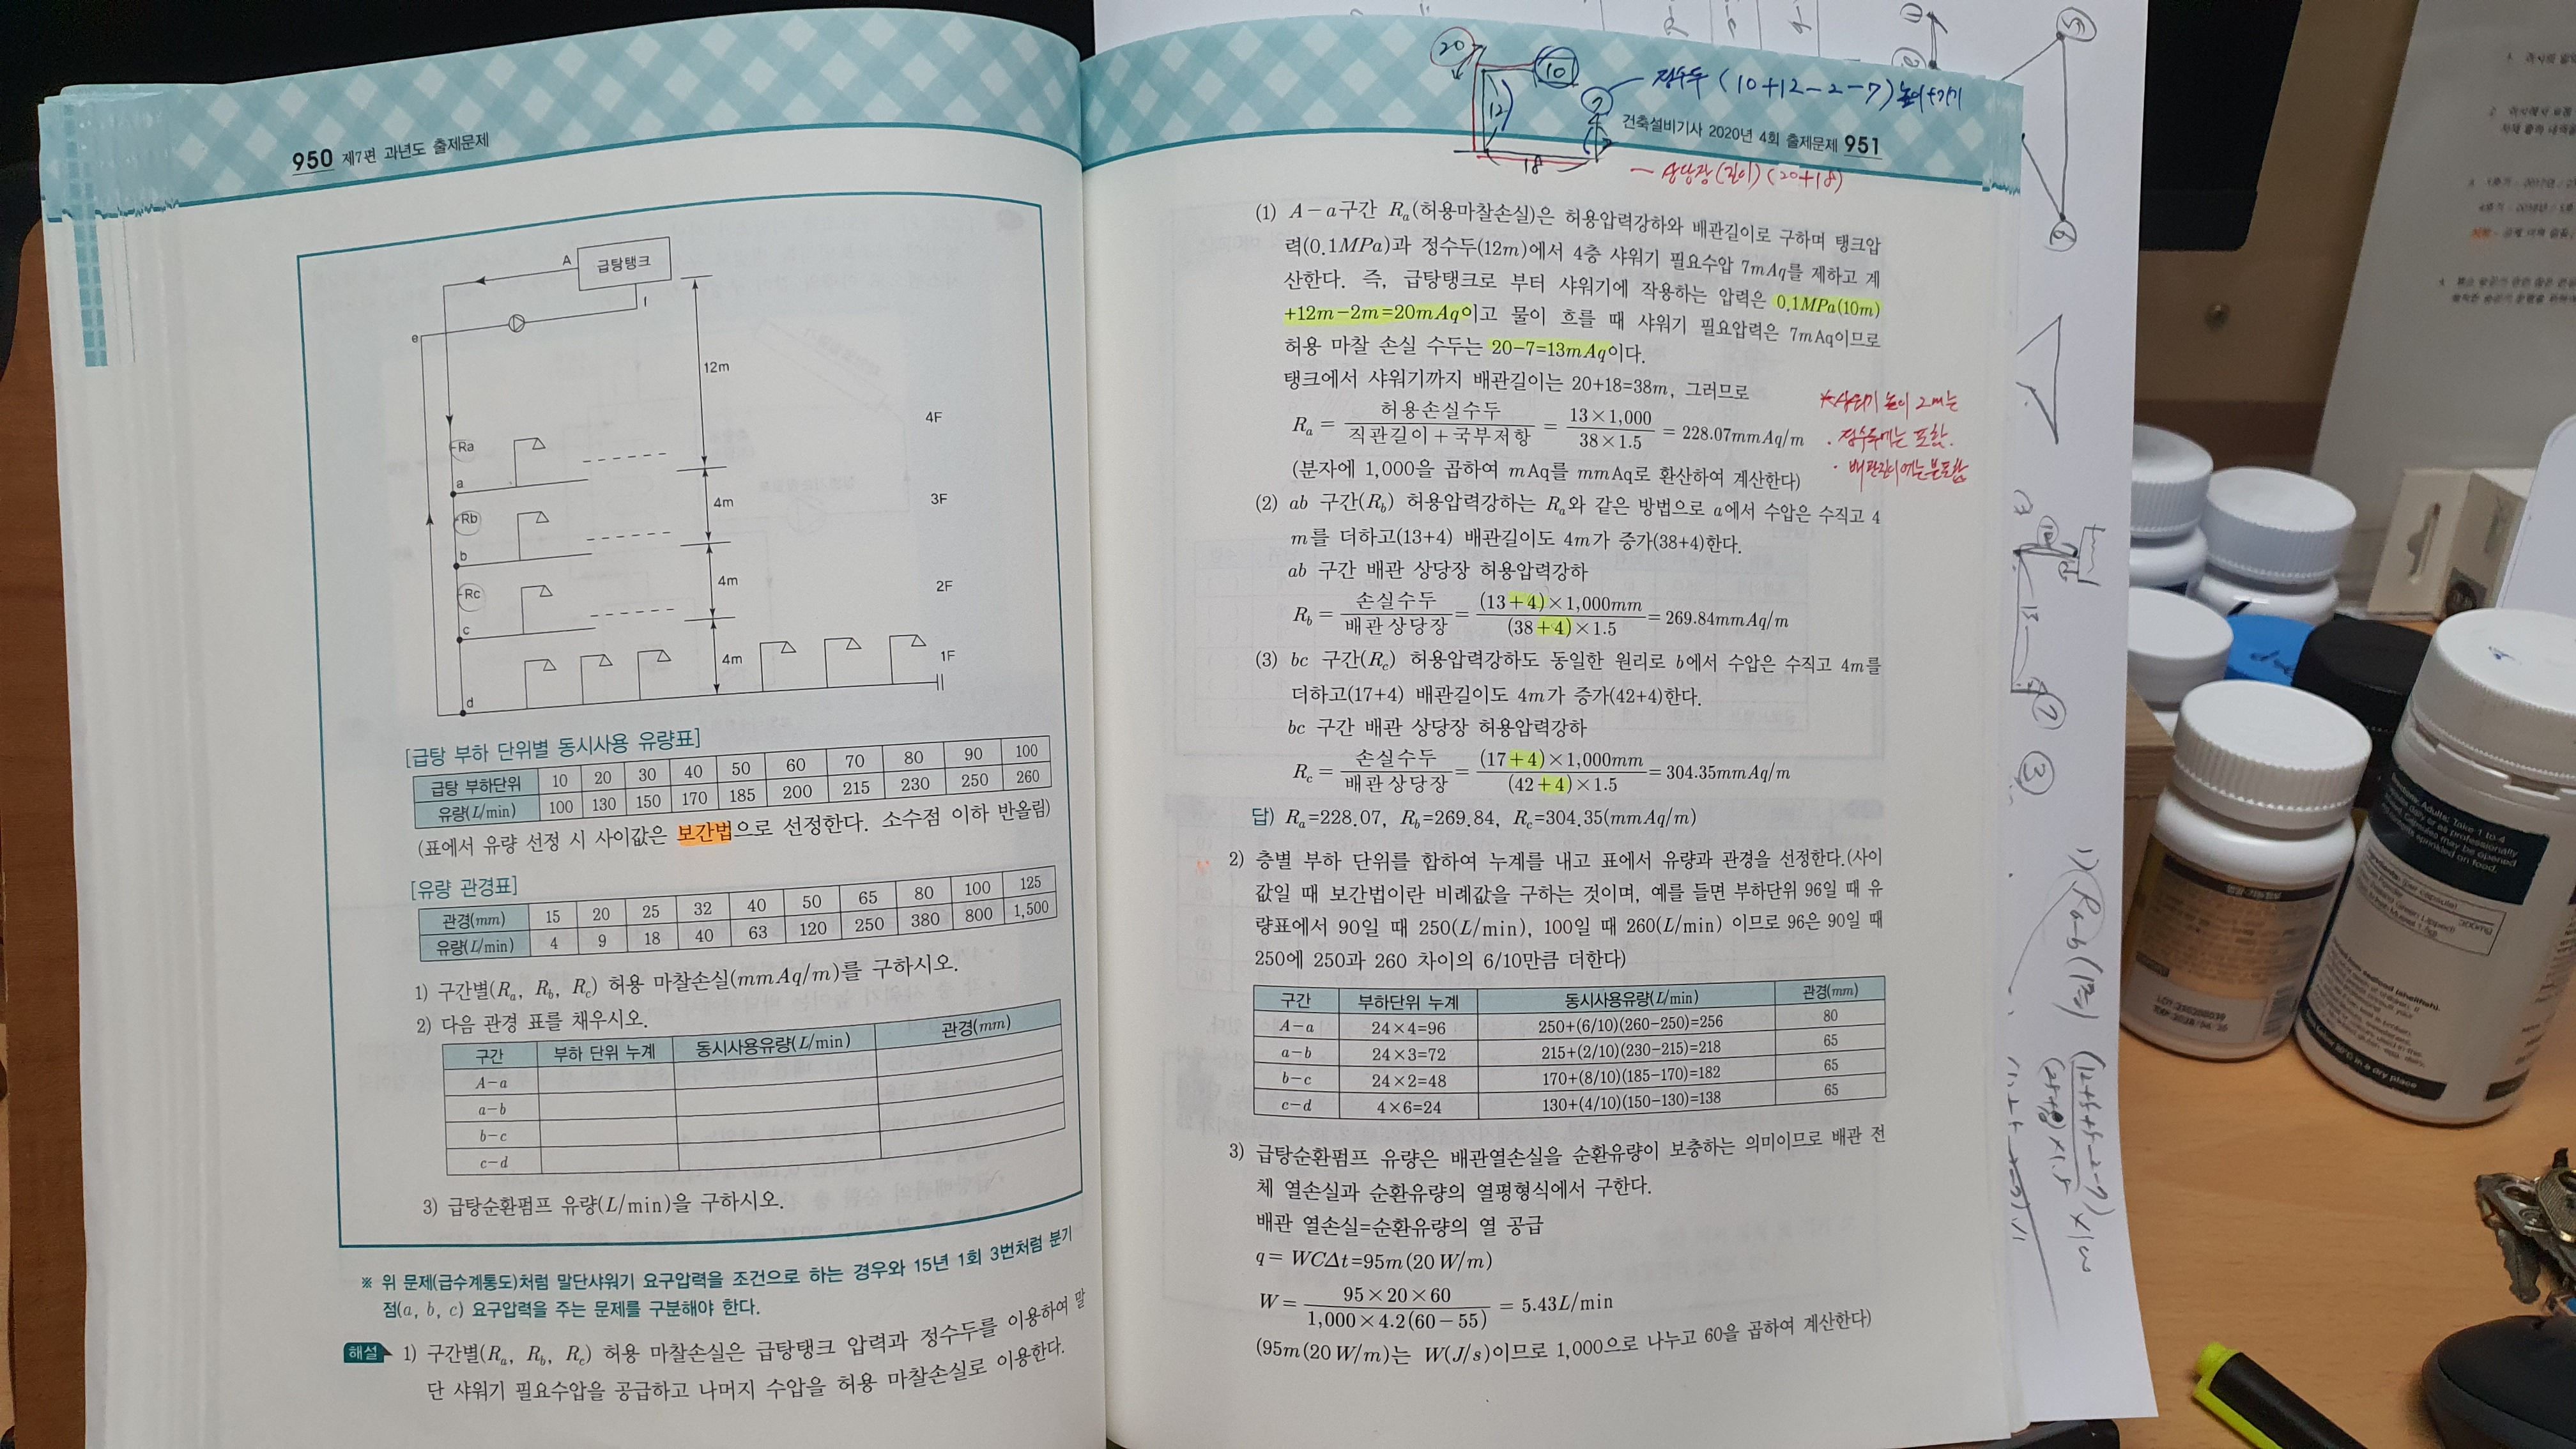 950 제7편 과년도 출제문제
A
급탕탱크
e
12m
4F
Ra
a
4m
3F
Rb
b
4m
2F
Rc
c
4m
1F
d
[급탕 부하 단위별 동시사용 유량표]
급탕 부하단위 10 20 30 40 50 60 70 80 90 100
유량(L/min) 100 130 150 170 185 200 215 230 250 260
(표에서 유량 선정 시 사이값은 보간법으로 선정한다. 소수점 이하 반올림)
[유량 관경표]
관경(mm) 15 20 25 32 40 50 65 80 100 125
유량(L/min) 4 9 18 40 63 120 250 380 800 1,500
1) 구간별(Ra, Rb, Rc) 허용 마찰손실(mmAq/m)를 구하시오.
2) 다음 관경 표를 채우시오.
구간 부하 단위 누계 동시사용유량(L/min) 관경(mm)
A-a
a-b
b-c
c-d
3) 급탕순환펌프 유량(L/min)을 구하시오.
※ 위 문제(급수계통도)처럼 말단샤워기 요구압력을 조건으로 하는 경우와 15년 1회 3번처럼 분기
점(a, b, c) 요구압력을 주는 문제를 구분해야 한다.
해설 1) 구간별(Ra, Rb, Rc) 허용 마찰손실은 급탕탱크 압력과 정수두를 이용하여 말
단 샤워기 필요수압을 공급하고 나머지 수압을 허용 마찰손실로 이용한다.
20
10
12
7
18
정수두 (10+12-2-7) 높이+기기
건축설비기사 2020년 4회 출제문제 951
- 상당장(길이) (20+18)
(1) A-a구간 Ra(허용마찰손실)은 허용압력강하와 배관길이로 구하며 탱크압
력(0.1MPa)과 정수두(12m)에서 4층 샤워기 필요수압 7mAq를 제하고 계
산한다. 즉, 급탕탱크로 부터 샤워기에 작용하는 압력은 0.1MPa(10m)
+12m-2m=20mAq이고 물이 흐를 때 샤워기 필요압력은 7mAq이므로
허용 마찰 손실 수두는 20-7=13mAq이다.
탱크에서 샤워기까지 배관길이는 20+18=38m, 그러므로
Ra = 허용손실수두 / 직관길이+국부저항 = 13×1,000 / 38×1.5 = 228.07mmAq/m
(분자에 1,000을 곱하여 mAq를 mmAq로 환산하여 계산한다)
*샤워기 높이 2m는
· 정수두에는 포함.
· 배관길이에는 불포함
(2) ab 구간(Rb) 허용압력강하는 Ra와 같은 방법으로 a에서 수압은 수직고 4
m를 더하고(13+4) 배관길이도 4m가 증가(38+4)한다.
ab 구간 배관 상당장 허용압력강하
Rb = 손실수두 / 배관상당장 = (13+4)×1,000mm / (38+4)×1.5 = 269.84mmAq/m
(3) bc 구간(Rc) 허용압력강하도 동일한 원리로 b에서 수압은 수직고 4m를
더하고(17+4) 배관길이도 4m가 증가(42+4)한다.
bc 구간 배관 상당장 허용압력강하
Rc = 손실수두 / 배관상당장 = (17+4)×1,000mm / (42+4)×1.5 = 304.35mmAq/m
답) Ra=228.07, Rb=269.84, Rc=304.35(mmAq/m)
2) 층별 부하 단위를 합하여 누계를 내고 표에서 유량과 관경을 선정한다.(사이
값일 때 보간법이란 비례값을 구하는 것이며, 예를 들면 부하단위 96일 때 유
량표에서 90일 때 250(L/min), 100일 때 260(L/min) 이므로 96은 90일 때
250에 250과 260 차이의 6/10만큼 더한다)
구간 부하단위 누계 동시사용유량(L/min) 관경(mm)
A-a 24×4=96 250+(6/10)(260-250)=256 80
a-b 24×3=72 215+(2/10)(230-215)=218 65
b-c 24×2=48 170+(8/10)(185-170)=182 65
c-d 4×6=24 130+(4/10)(150-130)=138 65
3) 급탕순환펌프 유량은 배관열손실을 순환유량이 보충하는 의미이므로 배관 전
체 열손실과 순환유량의 열평형식에서 구한다.
배관 열손실=순환유량의 열 공급
q = WCΔt=95m(20W/m)
W = 95×20×60 / 1,000×4.2(60-55) = 5.43L/min
(95m(20W/m)는 W(J/s)이므로 1,000으로 나누고 60을 곱하여 계산한다)